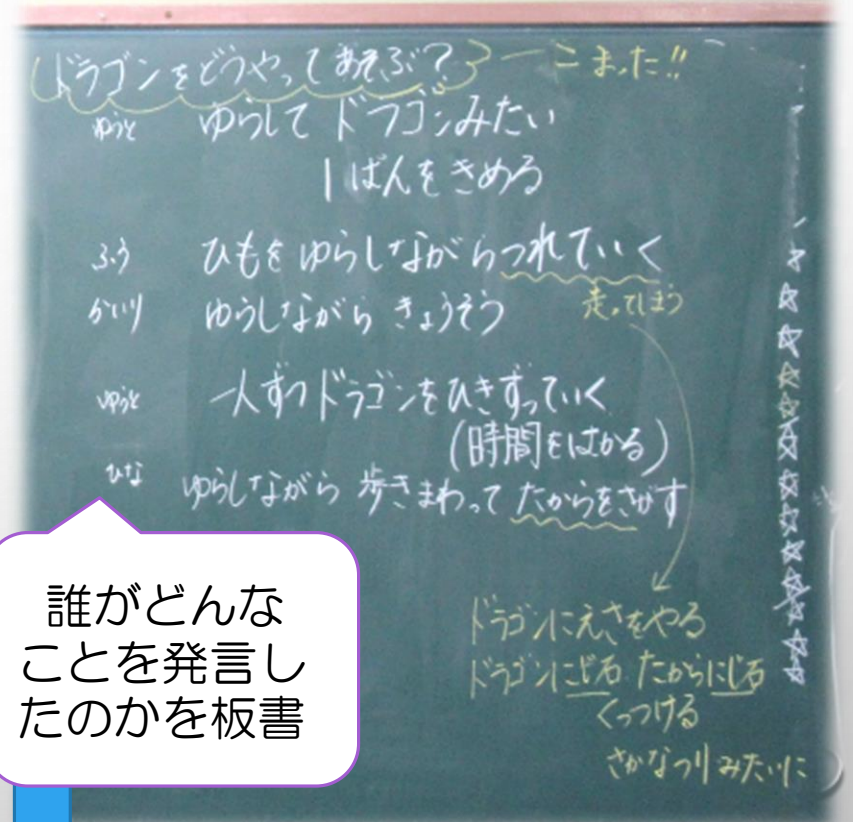 ドラゴンをどうやってあそぶ? ー こまった!!
ゆうと ゆらして ドラゴンみたい
1ばんをきめる
ふう ひもをゆらしながらつれていく
かいり ゆらしながら きょうそう 走ってしまう
ゆうと 一人ずつドラゴンをひきずっていく
(時間をはかる)
ひな ゆらしながら 歩きまわって たからをさがす
ドラゴンにえさをやる
ドラゴンにじ石 たからにじ石
くっつける
さかなつりみたいに
誰がどんな
ことを発言し
たのかを板書